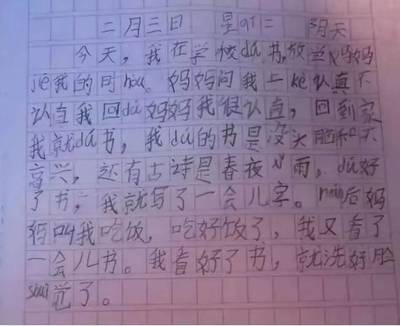 二月三日 星qi二 晴天
今天，我在学校dú书，放学妈妈
jiē我的时hou。妈妈问我上kè认真不
认真我回dá妈妈我很认真，回到家
我就dú书，我dú的书是没头脑和不
高兴，还有古诗是春夜喜雨，dú好
了书，我就写了一会儿字。rán后妈
妈叫我吃饭，吃好饭了，我又看了
一会儿书。我看好了书，就洗好脸
shuì觉了。